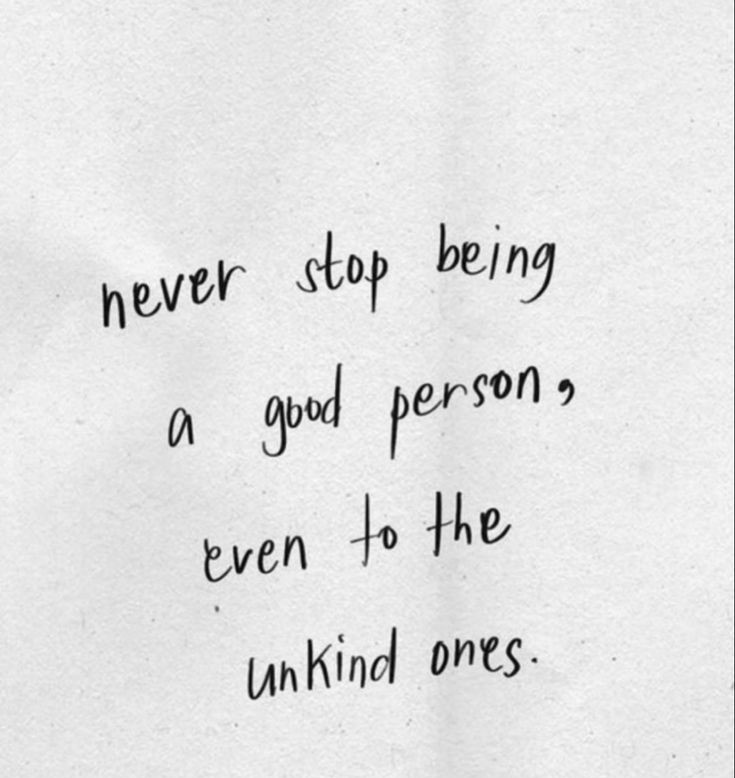 never stop being
a good person,
even to the
unkind ones.